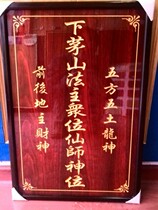 五方五土龍神
下茅山法主眾位仙師神位
前後地主財神